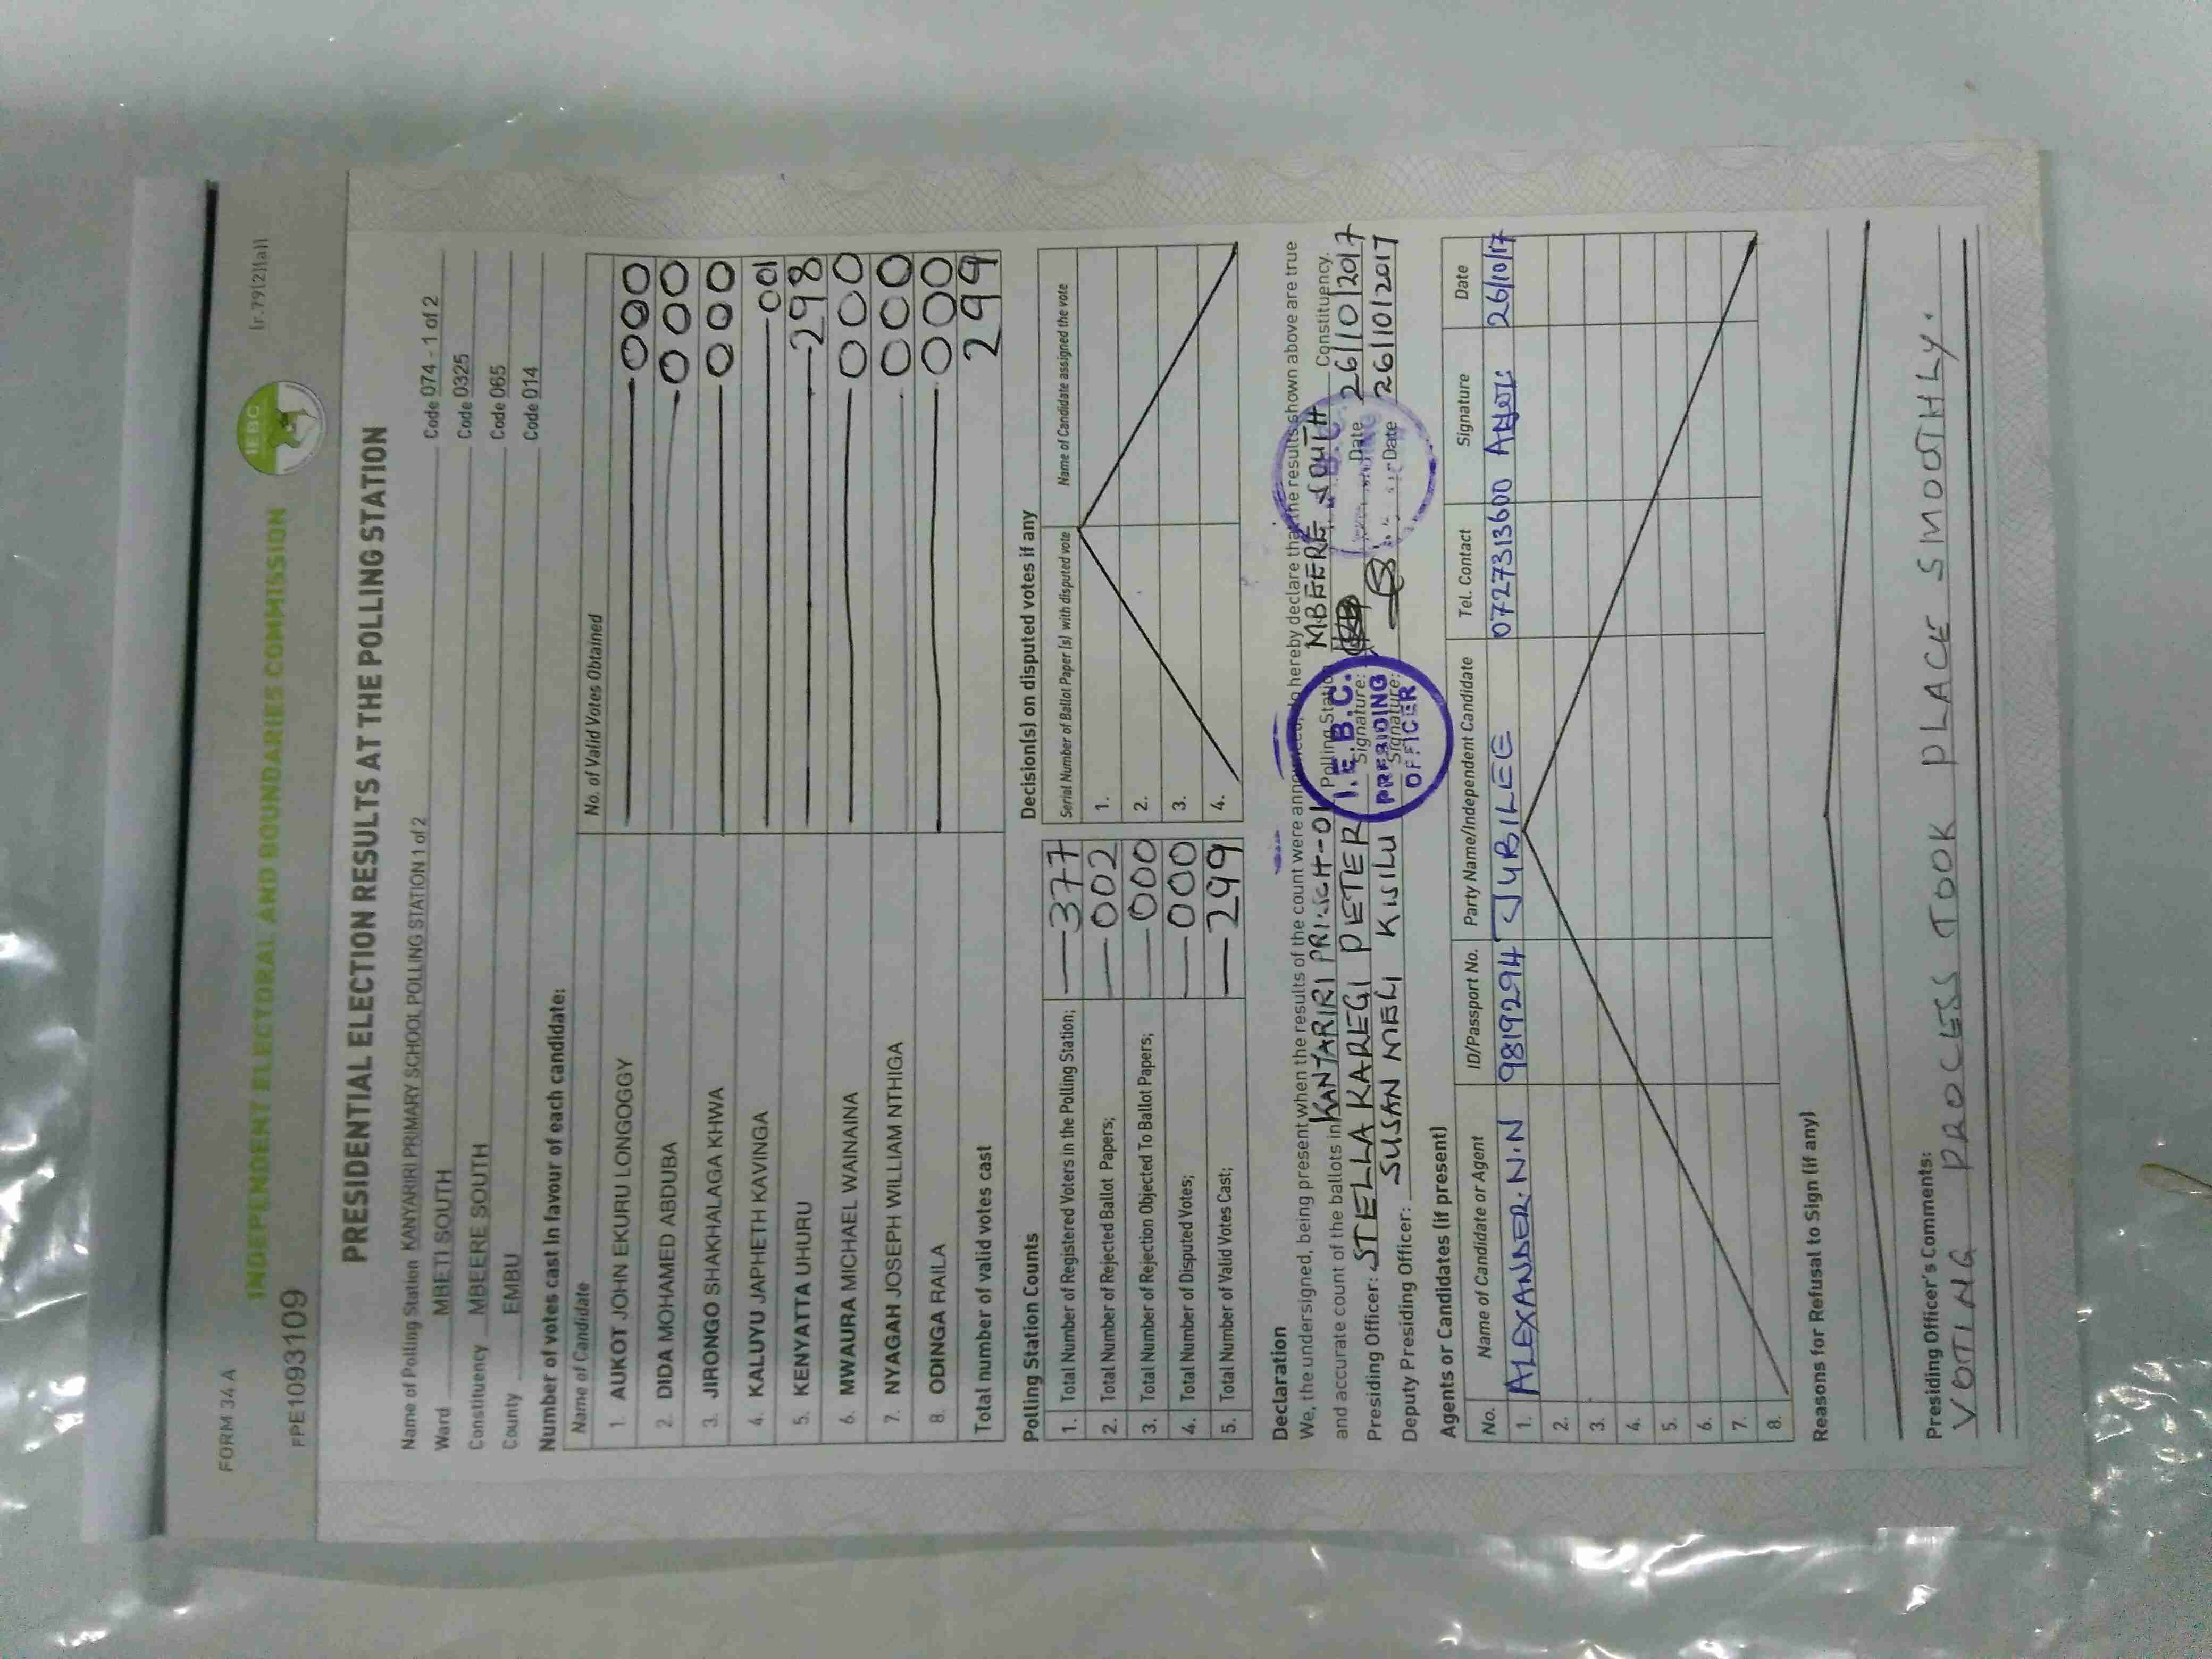 FORM 34 A
(r.79(2)(a))
INDEPENDENT ELECTORAL AND BOUNDARIES COMMISSION
IEBC
FPE1093109
PRESIDENTIAL ELECTION RESULTS AT THE POLLING STATION
Name of Polling Station KANYARIRI PRIMARY SCHOOL POLLING STATION 1 of 2 Code 074 - 1 of 2
Ward MBETI SOUTH Code 0325
Constituency MBEERE SOUTH Code 065
County EMBU Code 014
Number of votes cast in favour of each candidate:
Name of Candidate No. of Valid Votes Obtained
1. AUKOT JOHN EKURU LONGOGGY 000
2. DIDA MOHAMED ABDUBA 000
3. JIRONGO SHAKHALAGA KHWA 000
4. KALUYU JAPHETH KAVINGA 001
5. KENYATTA UHURU 298
6. MWAURA MICHAEL WAINAINA 000
7. NYAGAH JOSEPH WILLIAM NTHIGA 000
8. ODINGA RAILA 000
Total number of valid votes cast 299
Polling Station Counts
1. Total Number of Registered Voters in the Polling Station; 377
2. Total Number of Rejected Ballot Papers; 002
3. Total Number of Rejection Objected To Ballot Papers; 000
4. Total Number of Disputed Votes; 000
5. Total Number of Valid Votes Cast; 299
Decision(s) on disputed votes if any
Serial Number of Ballot Paper (s) with disputed vote Name of Candidate assigned the vote
1.
2.
3.
4.
Declaration
We, the undersigned, being present when the results of the count were announced, do hereby declare that the results shown above are true
and accurate count of the ballots in KANYARIRI PRI.SCH-01 Polling Station MBEERE SOUTH Constituency.
Presiding Officer: STELLA KAREGI PETER Signature: Date 26/10/2017
Deputy Presiding Officer: SUSAN MBLI KISILU Signature: Date 26/10/2017
I.E.B.C.
PRESIDING
OFFICER
Agents or Candidates (if present)
No. Name of Candidate or Agent ID/Passport No. Party Name/Independent Candidate Tel. Contact Signature Date
1. ALEXANDER.N.N 9819294 JUBILEE 0727313600 26/10/17
2.
3.
4.
5.
6.
7.
8.
Reasons for Refusal to Sign (if any)
Presiding Officer's Comments:
VOTING PROCESS TOOK PLACE SMOOTHLY.